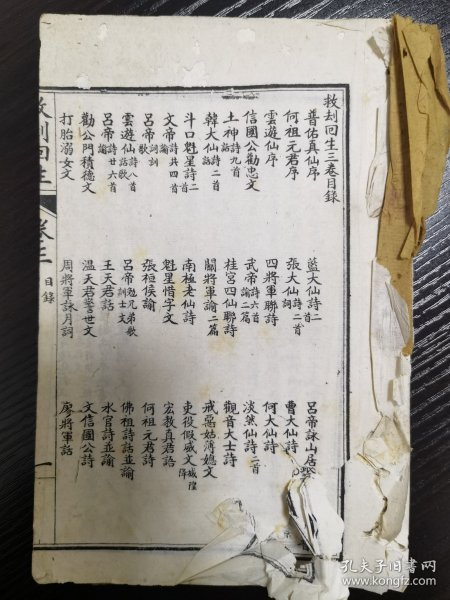 救刦回生三卷目錄
普佑真仙序
藍大仙詩二首
呂帝詠山居
何祖元君序
張大仙詩二首詞
曹大仙詩
雲遊仙序
四將軍聯詩
何大仙詩
信國公勸忠文
武帝詩六首論二篇
淡然仙詩二首
土神詩九首話
桂宮四仙聯詩
觀音大士詩
韓大仙詩二首話
關將軍論二篇
戒惡姑溥媳文
斗口魁星詩二首
南極老仙詩
吏役假威文城隍降
文帝詩共四首論
魁星惜字文
宏教真君語
呂帝詞訓歌
張桓侯論
何祖元君詩
雲遊仙詩八首話歌
呂帝勉兄弟歌訓士文
佛祖詩話並論
呂帝詩廿六首論
王天君話
水官詩並論
勸公門積德文
溫天君警世文
文信國公詩
打胎溺女文
周將軍詠月詞
廖將軍話
救刦回生
卷三
目錄
一
孔夫子旧书网
www.kongfz.com